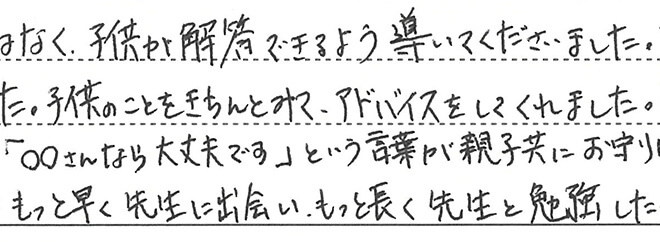 はなく、子供が解答できるよう導いてくださいました。
た。子供のことをきちんとみて、アドバイスをしてくれました。
「○○さんなら大丈夫です」という言葉が親子共にお守り
もっと早く先生に出会い、もっと長く先生と勉強した